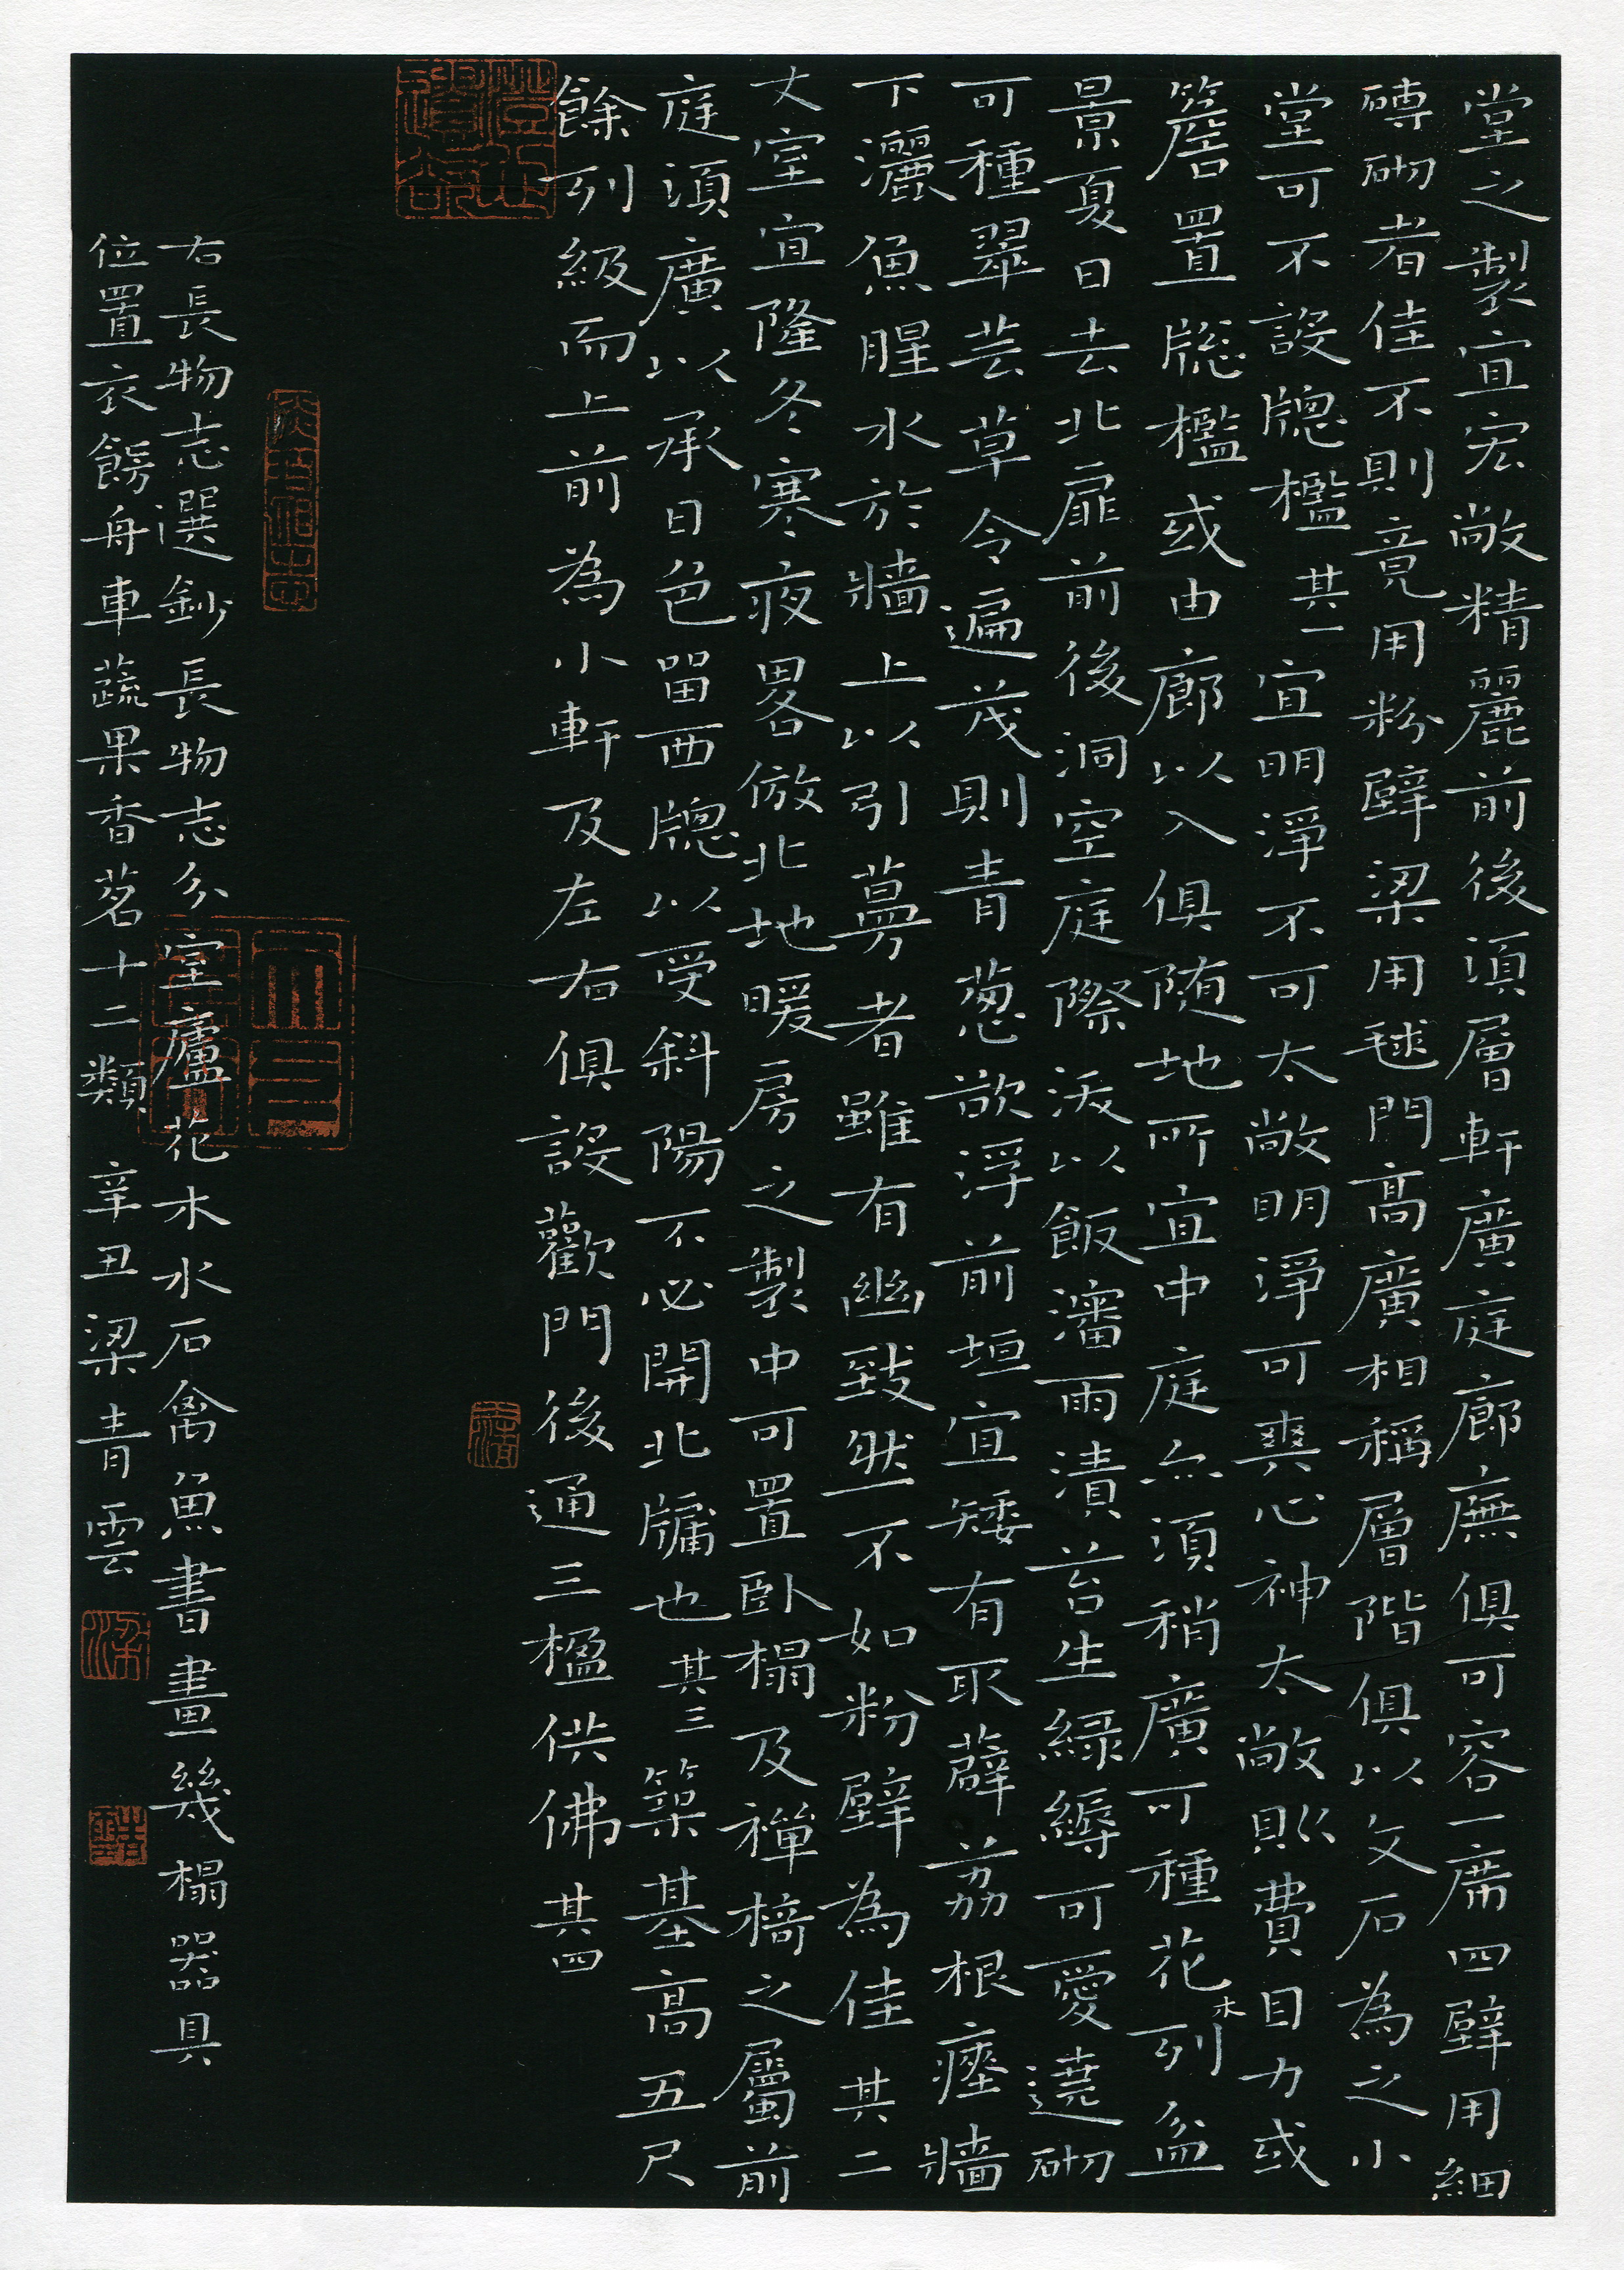 堂之製宜宏敞精麗前後須層軒廣庭廊廡俱可容一席四壁用細
磚砌者佳不則竟用粉壁梁用毬門高廣相稱層階俱以文石為之小
堂可不設牕檻其一宜明淨不可太敞明淨可爽心神太敞則費目力或
簷置牕檻或由廊以入俱随地所宜中庭亦須稍廣可種花木列盆
景夏日去北扉前後洞空庭際沃以飯瀋雨漬苔生緑縟可愛遶砌
可種翠芸草令遍茂則青葱欲浮前垣宜矮有取薜荔根瘞牆
下灑魚腥水於牆上以引蔓者雖有幽致然不如粉壁為佳其二
丈室宜隆冬寒夜畧倣北地暖房之製中可置臥榻及禪椅之屬前
庭須廣以承日色留西牕以受斜陽不必開北牖也其三築基高五尺
餘列級而上前為小軒及左右俱設歡門後通三楹供佛其四
右長物志選鈔長物志分室廬花木水石禽魚書畫幾榻器具
位置衣餙舟車蔬果香茗十二類 辛丑梁青雲